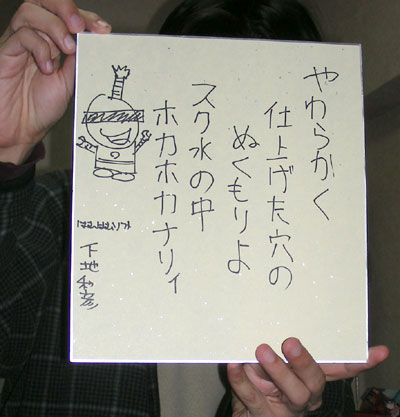 やわらかく
仕上げた穴の
ぬくもりよ
スク水の中
ホカホカナリィ
下地和彦